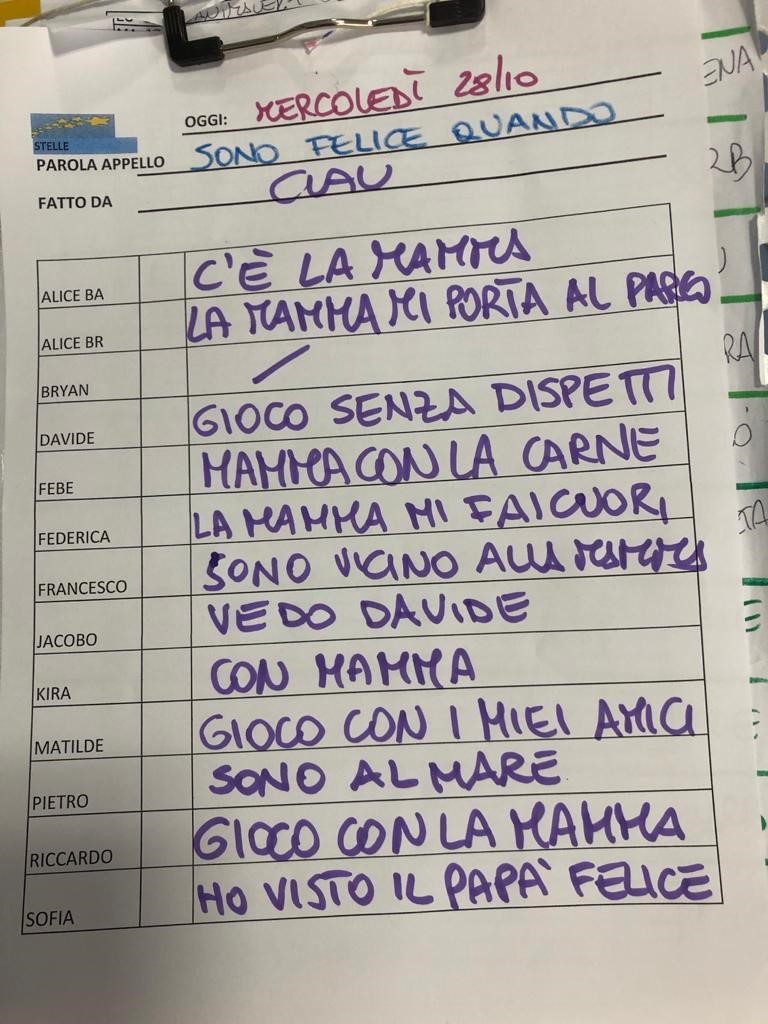 OGGI: MERCOLEDÌ 28/10
STELLE
PAROLA APPELLO SONO FELICE QUANDO
FATTO DA CLAU
ALICE BA C'È LA MAMMA
ALICE BR LA MAMMA MI PORTA AL PARCO
BRYAN /
DAVIDE GIOCO SENZA DISPETTI
FEBE MAMMA CON LA CARNE
FEDERICA LA MAMMA MI FA I CUORI
FRANCESCO SONO VICINO ALLA MAMMA
JACOBO VEDO DAVIDE
KIRA CON MAMMA
MATILDE GIOCO CON I MIEI AMICI
PIETRO SONO AL MARE
RICCARDO GIOCO CON LA MAMMA
SOFIA HO VISTO IL PAPÀ FELICE
ENA
2B
RA